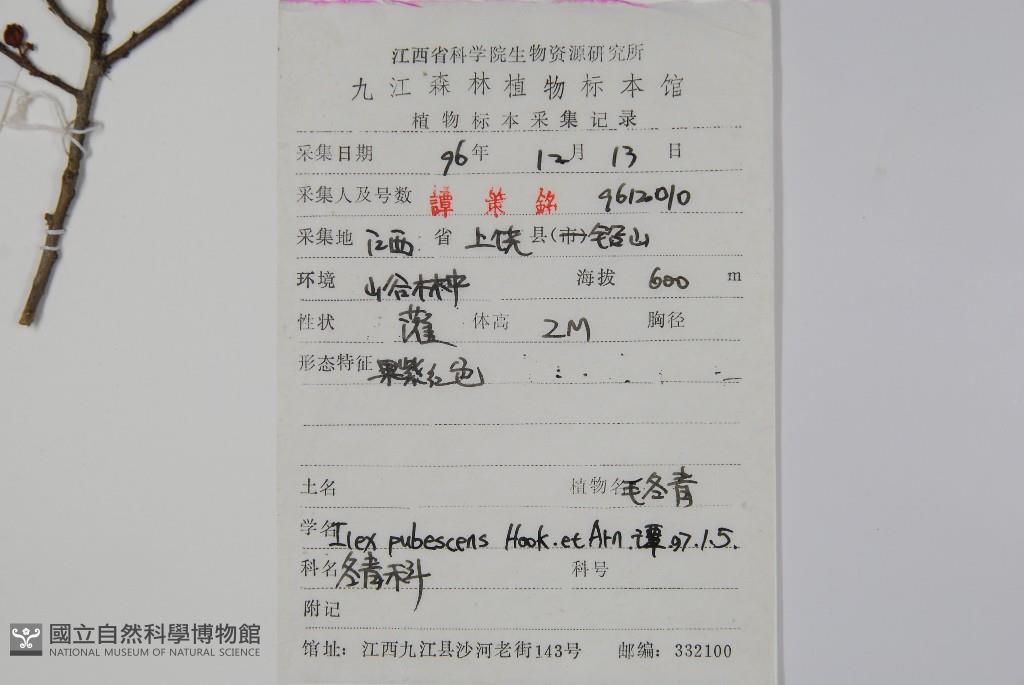 江西省科学院生物资源研究所
九江森林植物标本馆
植物标本采集记录
采集日期 96年 12月 13日
采集人及号数 譚策銘 9612010
采集地 江西省上饶县(市)铅山
环境 山谷林中 海拔 600 m
性状 灌 体高 2M 胸径
形态特征 果紫红色
土名 植物名 毛冬青
学名 Ilex pubescens Hook. et Arn. 譚.97.1.5.
科名 冬青科 科号
附记
馆址：江西九江县沙河老街143号 邮编：332100
國立自然科學博物館
NATIONAL MUSEUM OF NATURAL SCIENCE